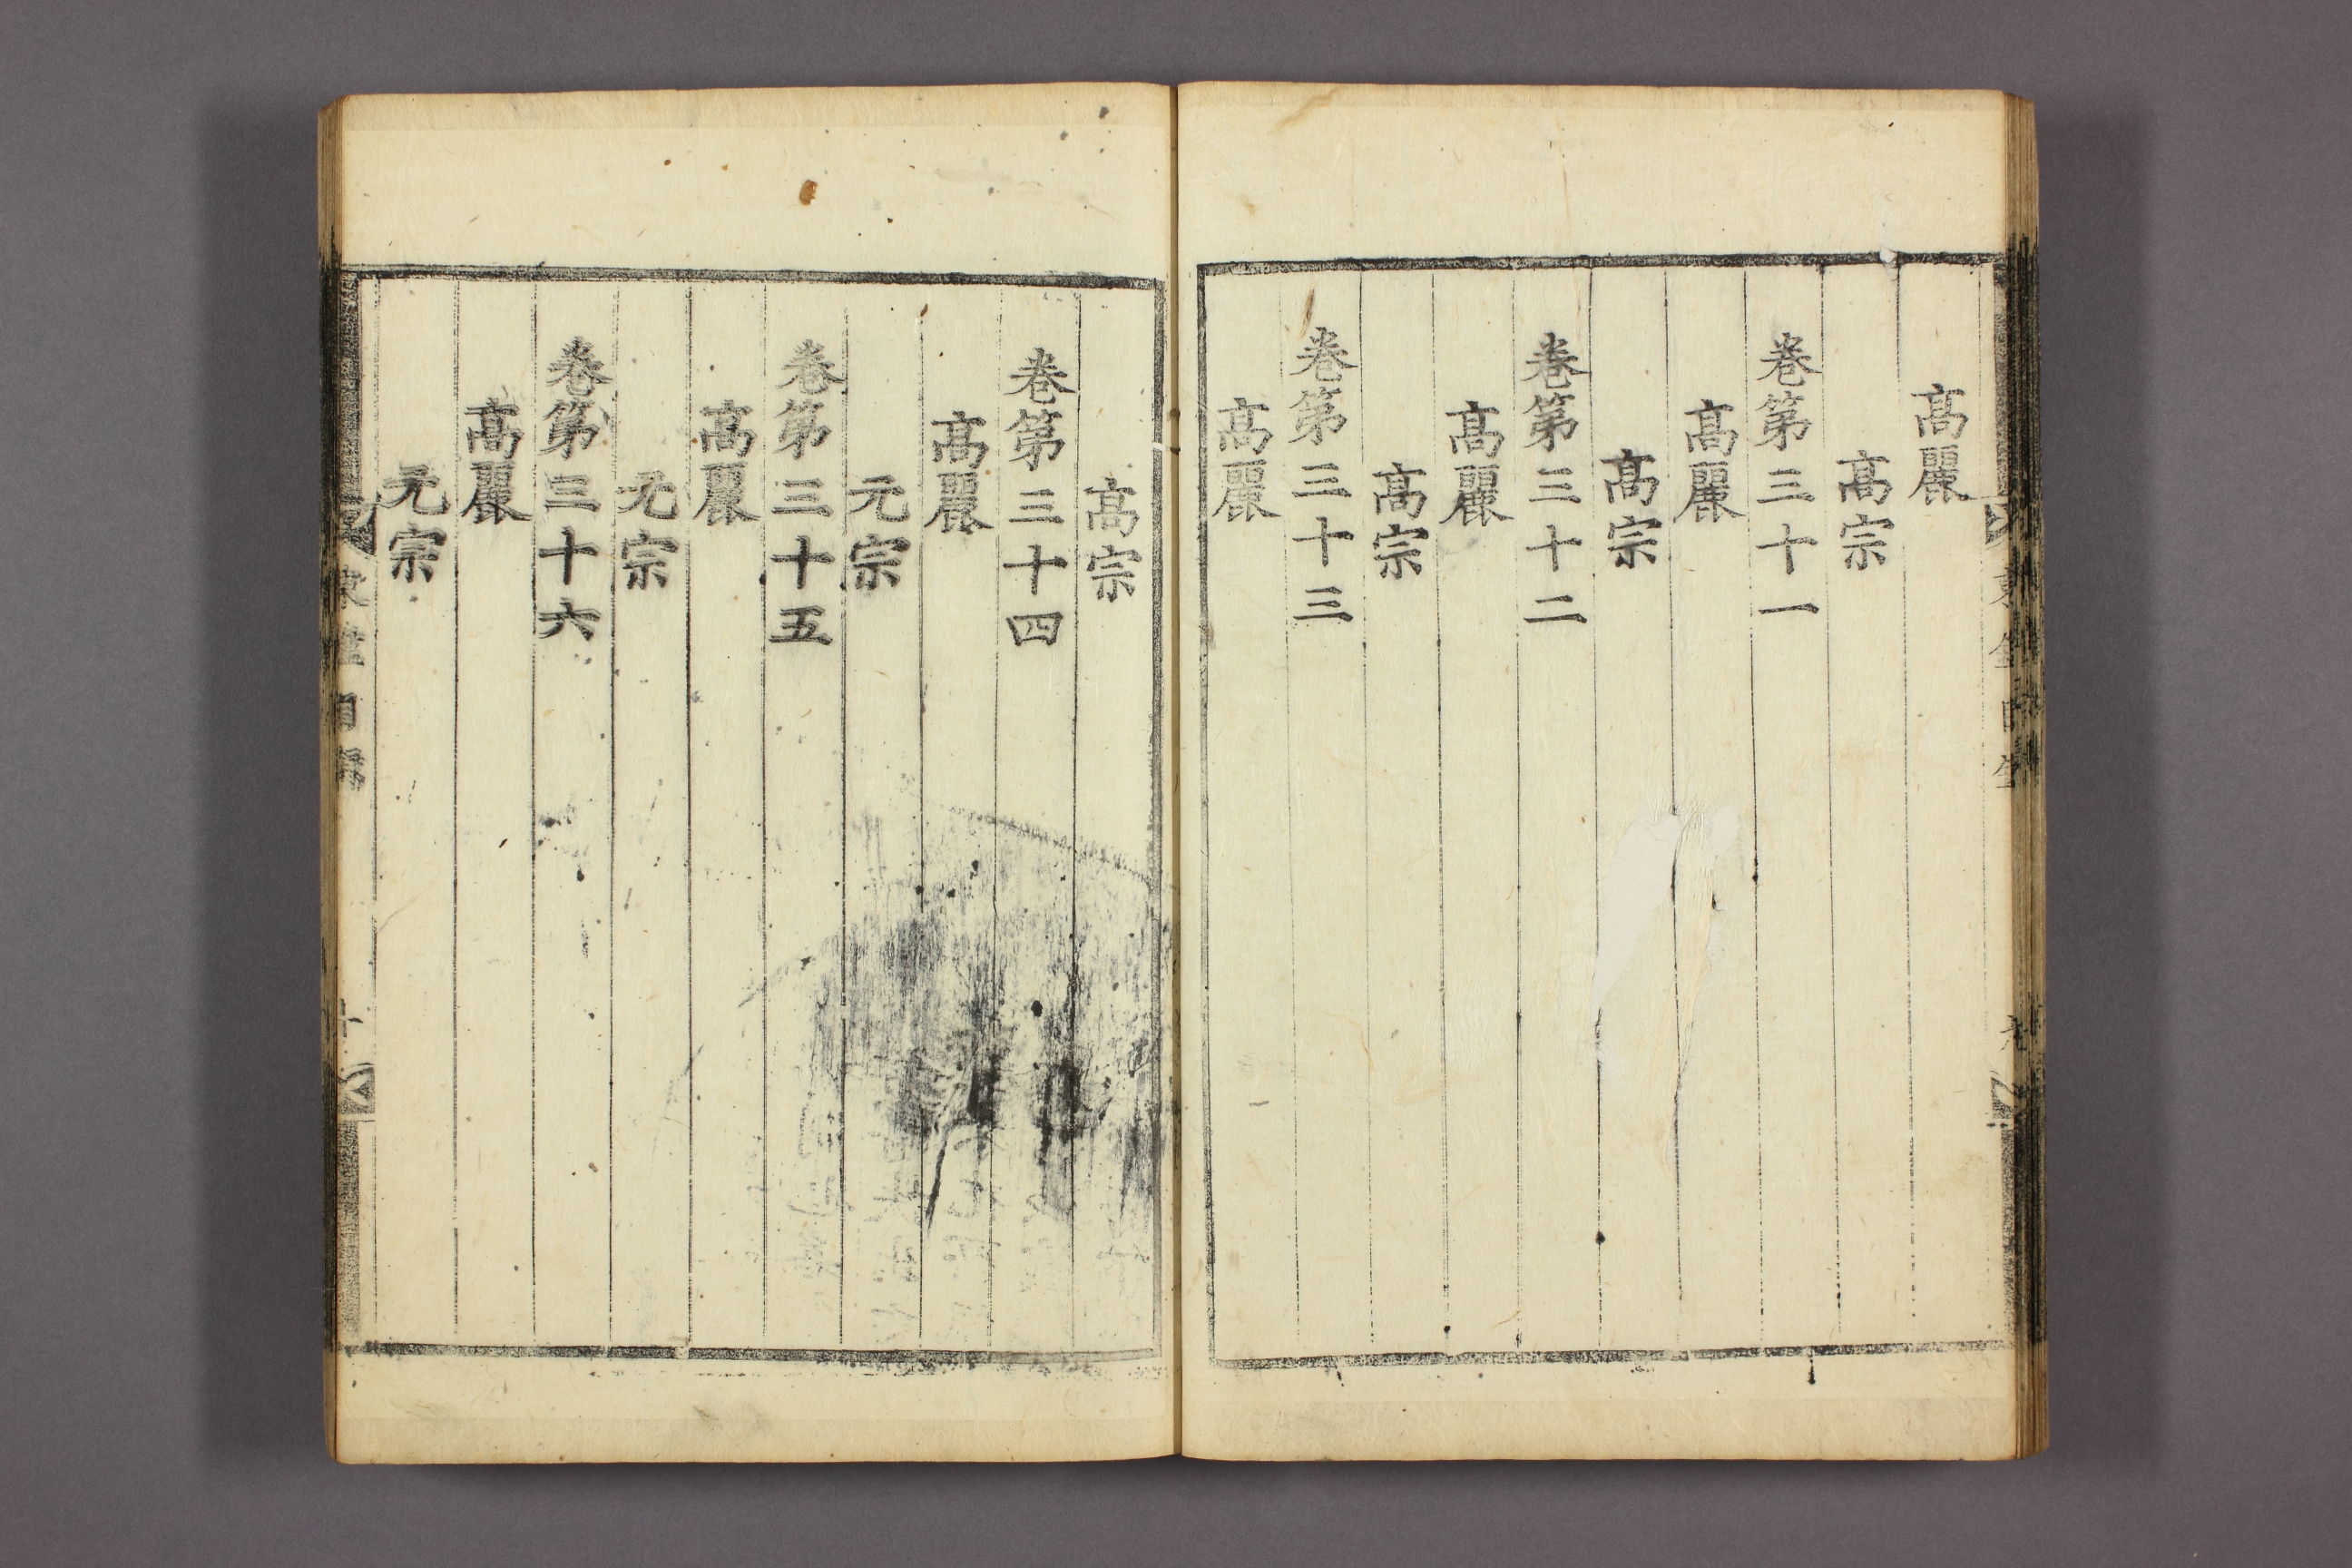 高麗
高宗
卷第三十一
高麗
高宗
卷第三十二
高麗
高宗
卷第三十三
高麗
高宗
卷第三十四
高麗
元宗
卷第三十五
高麗
元宗
卷第三十六
高麗
元宗